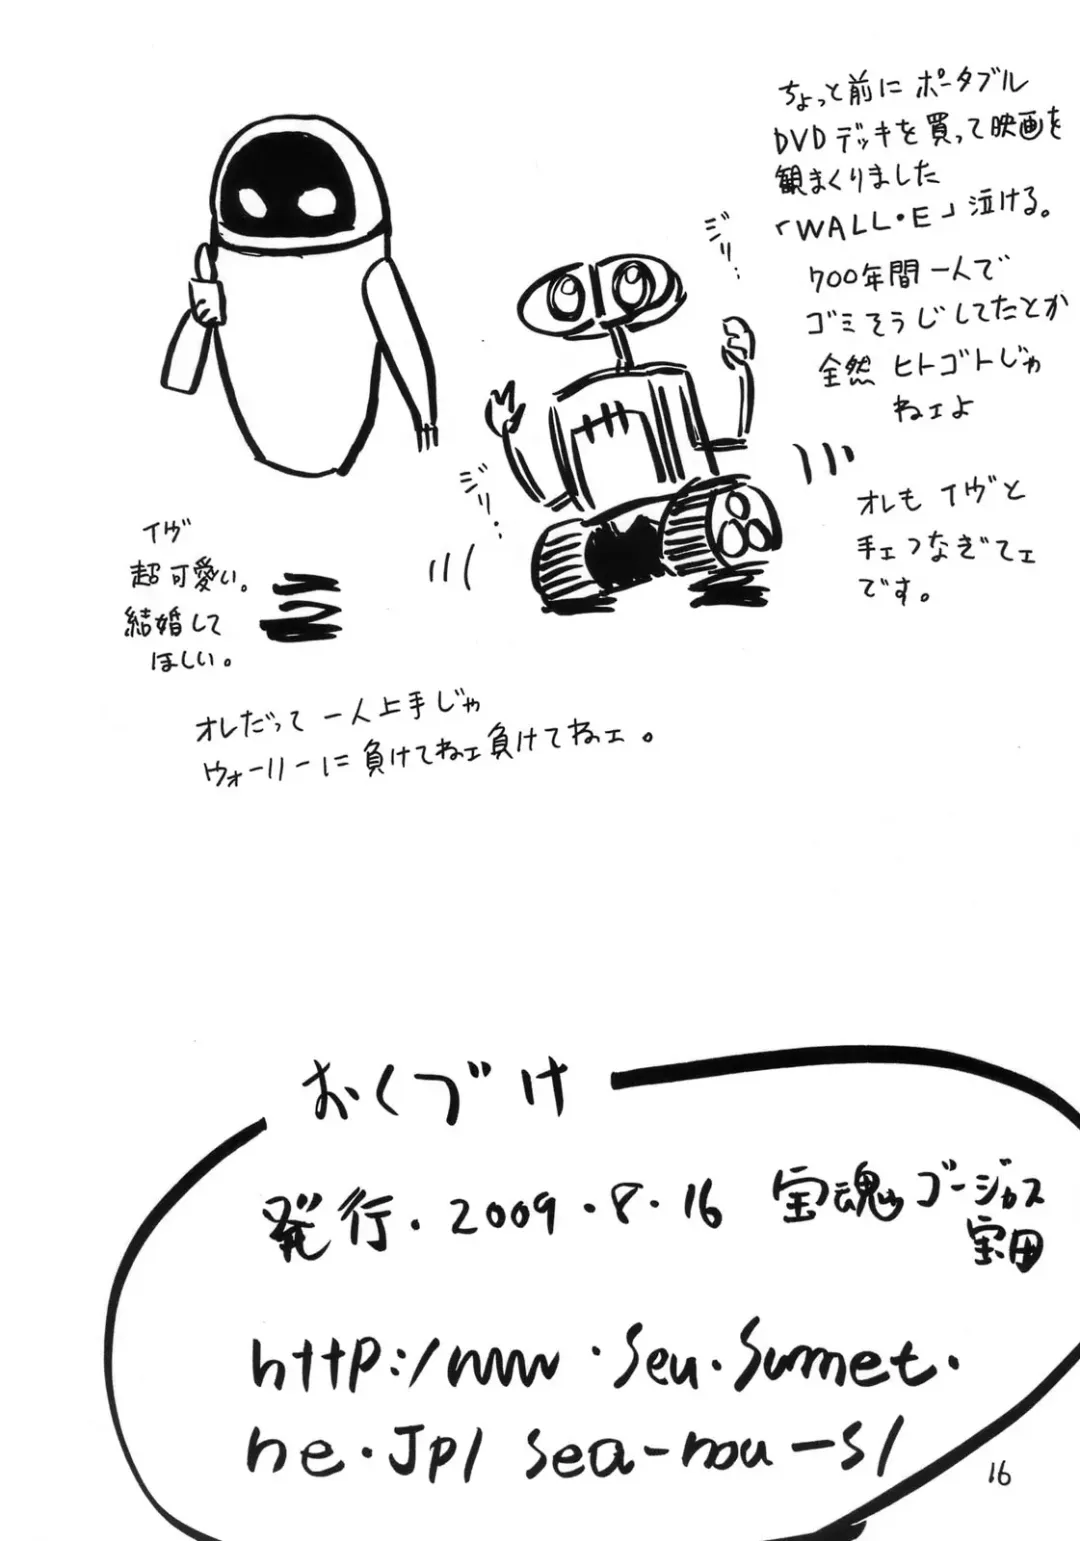 ちょっと前にポータブル
DVDデッキを買って映画を
観まくりました
「WALL・E」泣ける。
700年間一人で
ゴミそうじしてたとか
全然ヒトゴトじゃ
ねェよ
ジリ…
ジリ…
オレもイヴと
手ェつなぎてェ
です。
イヴ
超可愛い。
結婚して
ほしい。
オレだって一人上手じゃ
ウォーリーに負けてねェ負けてねェ。
おくづけ
発行・2009・8・16 宝魂 ゴージャス
宝田
http:/www.seu.sunnet.
ne.jp/sea-nou-s/
16